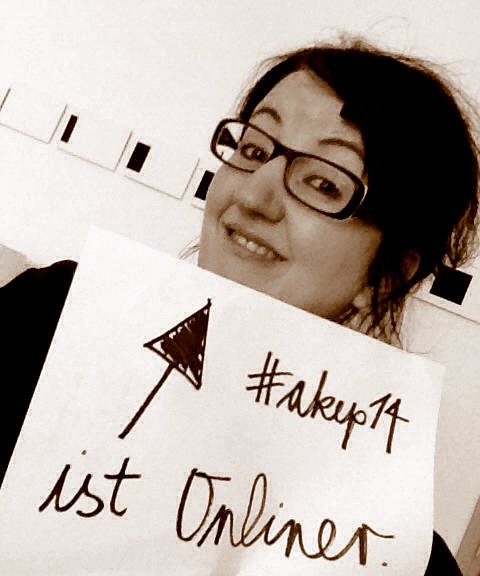 #akep14
ist Onliner.